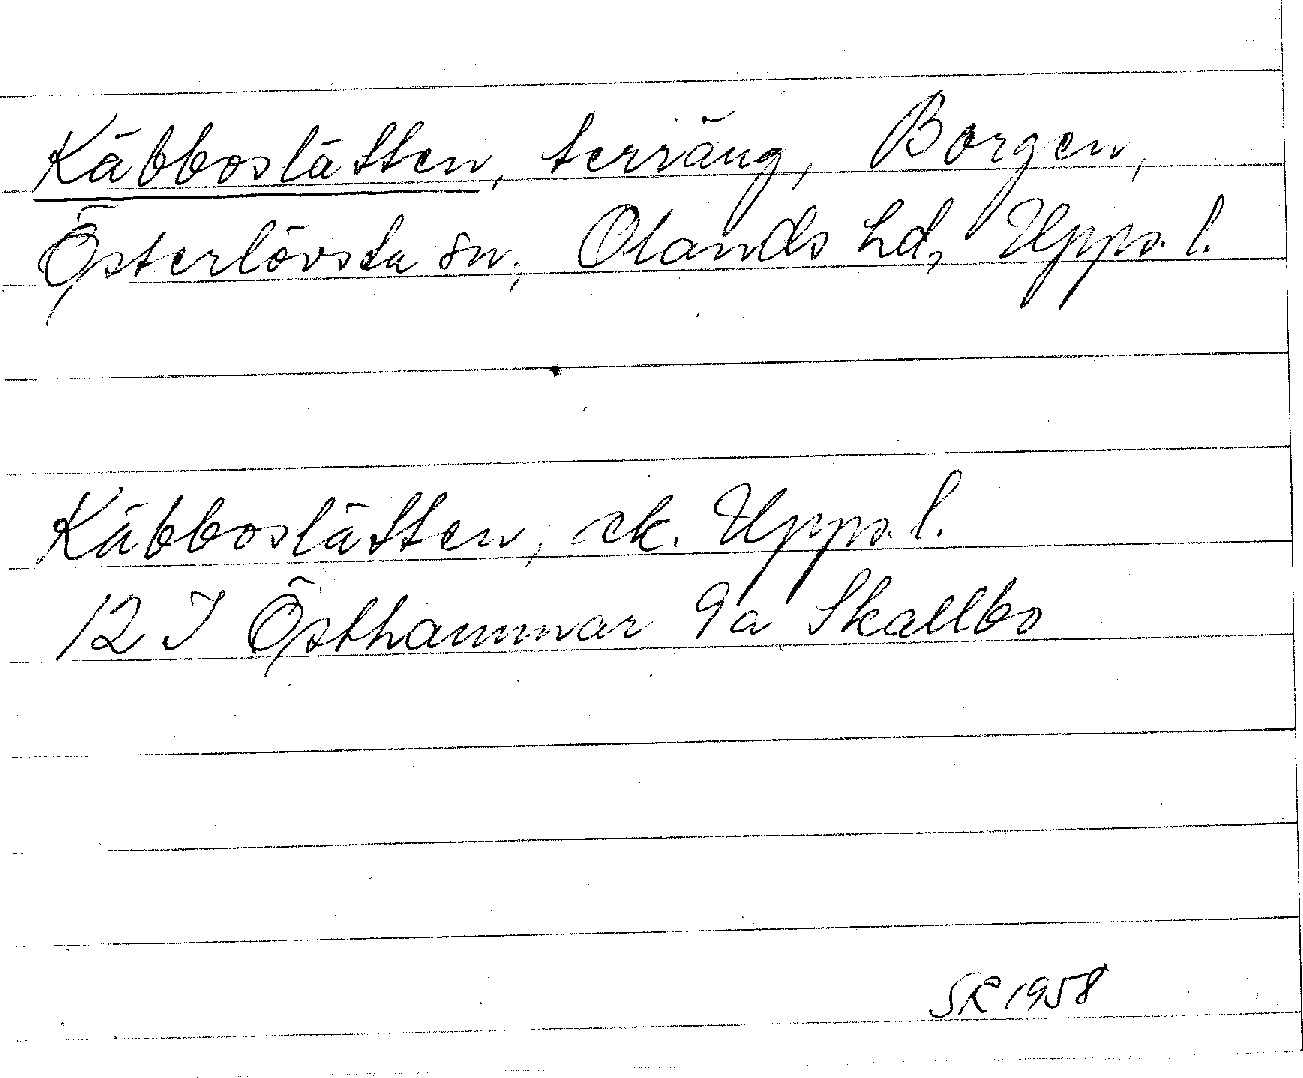 Käbboslätten, terräng, Borgen,
Österlövsta sn, Olands hd, Upps. l.
Käbboslätten, ek. Upps. l.
12 I Östhammar 9a Skallbo
SR 1958